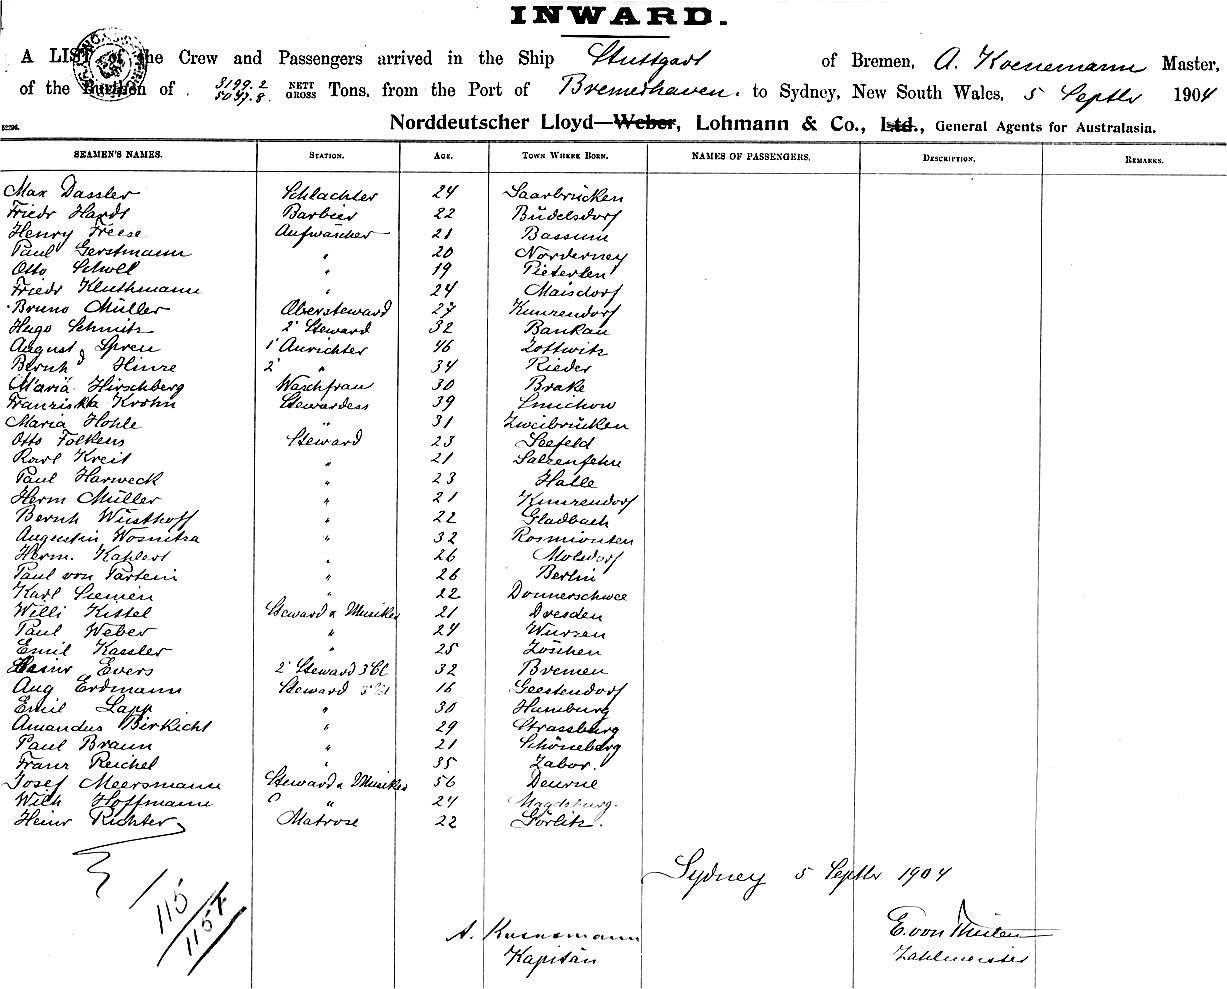 INWARD.
A LIST of the Crew and Passengers arrived in the Ship Stuttgart of Bremen, A. Koenemann Master,
of the Burthen of 3199.2 NETT
5037.8 GROSS Tons, from the Port of Bremerhaven. to Sydney, New South Wales, 5 Septbr 1904
52296.
Norddeutscher Lloyd—Weber, Lohmann & Co., Ltd., General Agents for Australasia.
SEAMEN'S NAMES. STATION. AGE. TOWN WHERE BORN. NAMES OF PASSENGERS. DESCRIPTION. REMARKS.
Max Dassler Schlachter 24 Saarbrücken
Friedr Hardt Barbier 22 Büdelsdorf
Henry Freese Aufwäscher 21 Bassum
Paul Gerstmann " 20 Norderney
Otto " 19
Friedr Kluthmann " 24 Maisdorf
Bruno Müller Obersteward 27 Kunzendorf
Hugo Schmitz 2' Steward 32 Bankau
August Spreu 1' Anrichter 46 Zottwitz
Bernhd Hinze 2' " 34 Rieder
Maria Hirschberg Waschfrau 30 Brake
Franziska Krohn Stewardess 39 Smichow
Maria Hohle " 31 Zweibrücken
Otto Folkens Steward 23 Seefeld
Karl Kreit " 21
Paul Harweck " 23 Halle
Herm Müller " 21 Kunzendorf
Bernh Wüsthoff " 22 Gladbach
Augustin Wosnitza " 32 Rosmionten
Herm. Kahlert " 26 Molsdorf
Paul von " 26 Berlin
Karl Siemen " 22 Donnerschwee
Willi Kittel Steward u Musiker 21 Dresden
Paul Weber " 24 Wurzen
Emil Kassler " 25 Zöschen
Heinr Evers 2' Steward 3 Cl 32 Bremen
Aug Erdmann Steward 3 Cl 16 Geestendorf
Emil Lapp " 30 Hamburg
Amandus Birkicht " 29 Strassburg
Paul Braun " 21 Schöneberg
Franz Reichel " 35 Zabor.
Josef Meersmann Steward u Musiker 56 Deurne
Wilh Hoffmann " " 24 Magdeburg.
Heinr Richter Matrose 22 Görlitz.
Sydney 5 Septbr 1904
115
115+
A. Koenemann
Kapitän
E. von Thülen
Zahlmeister